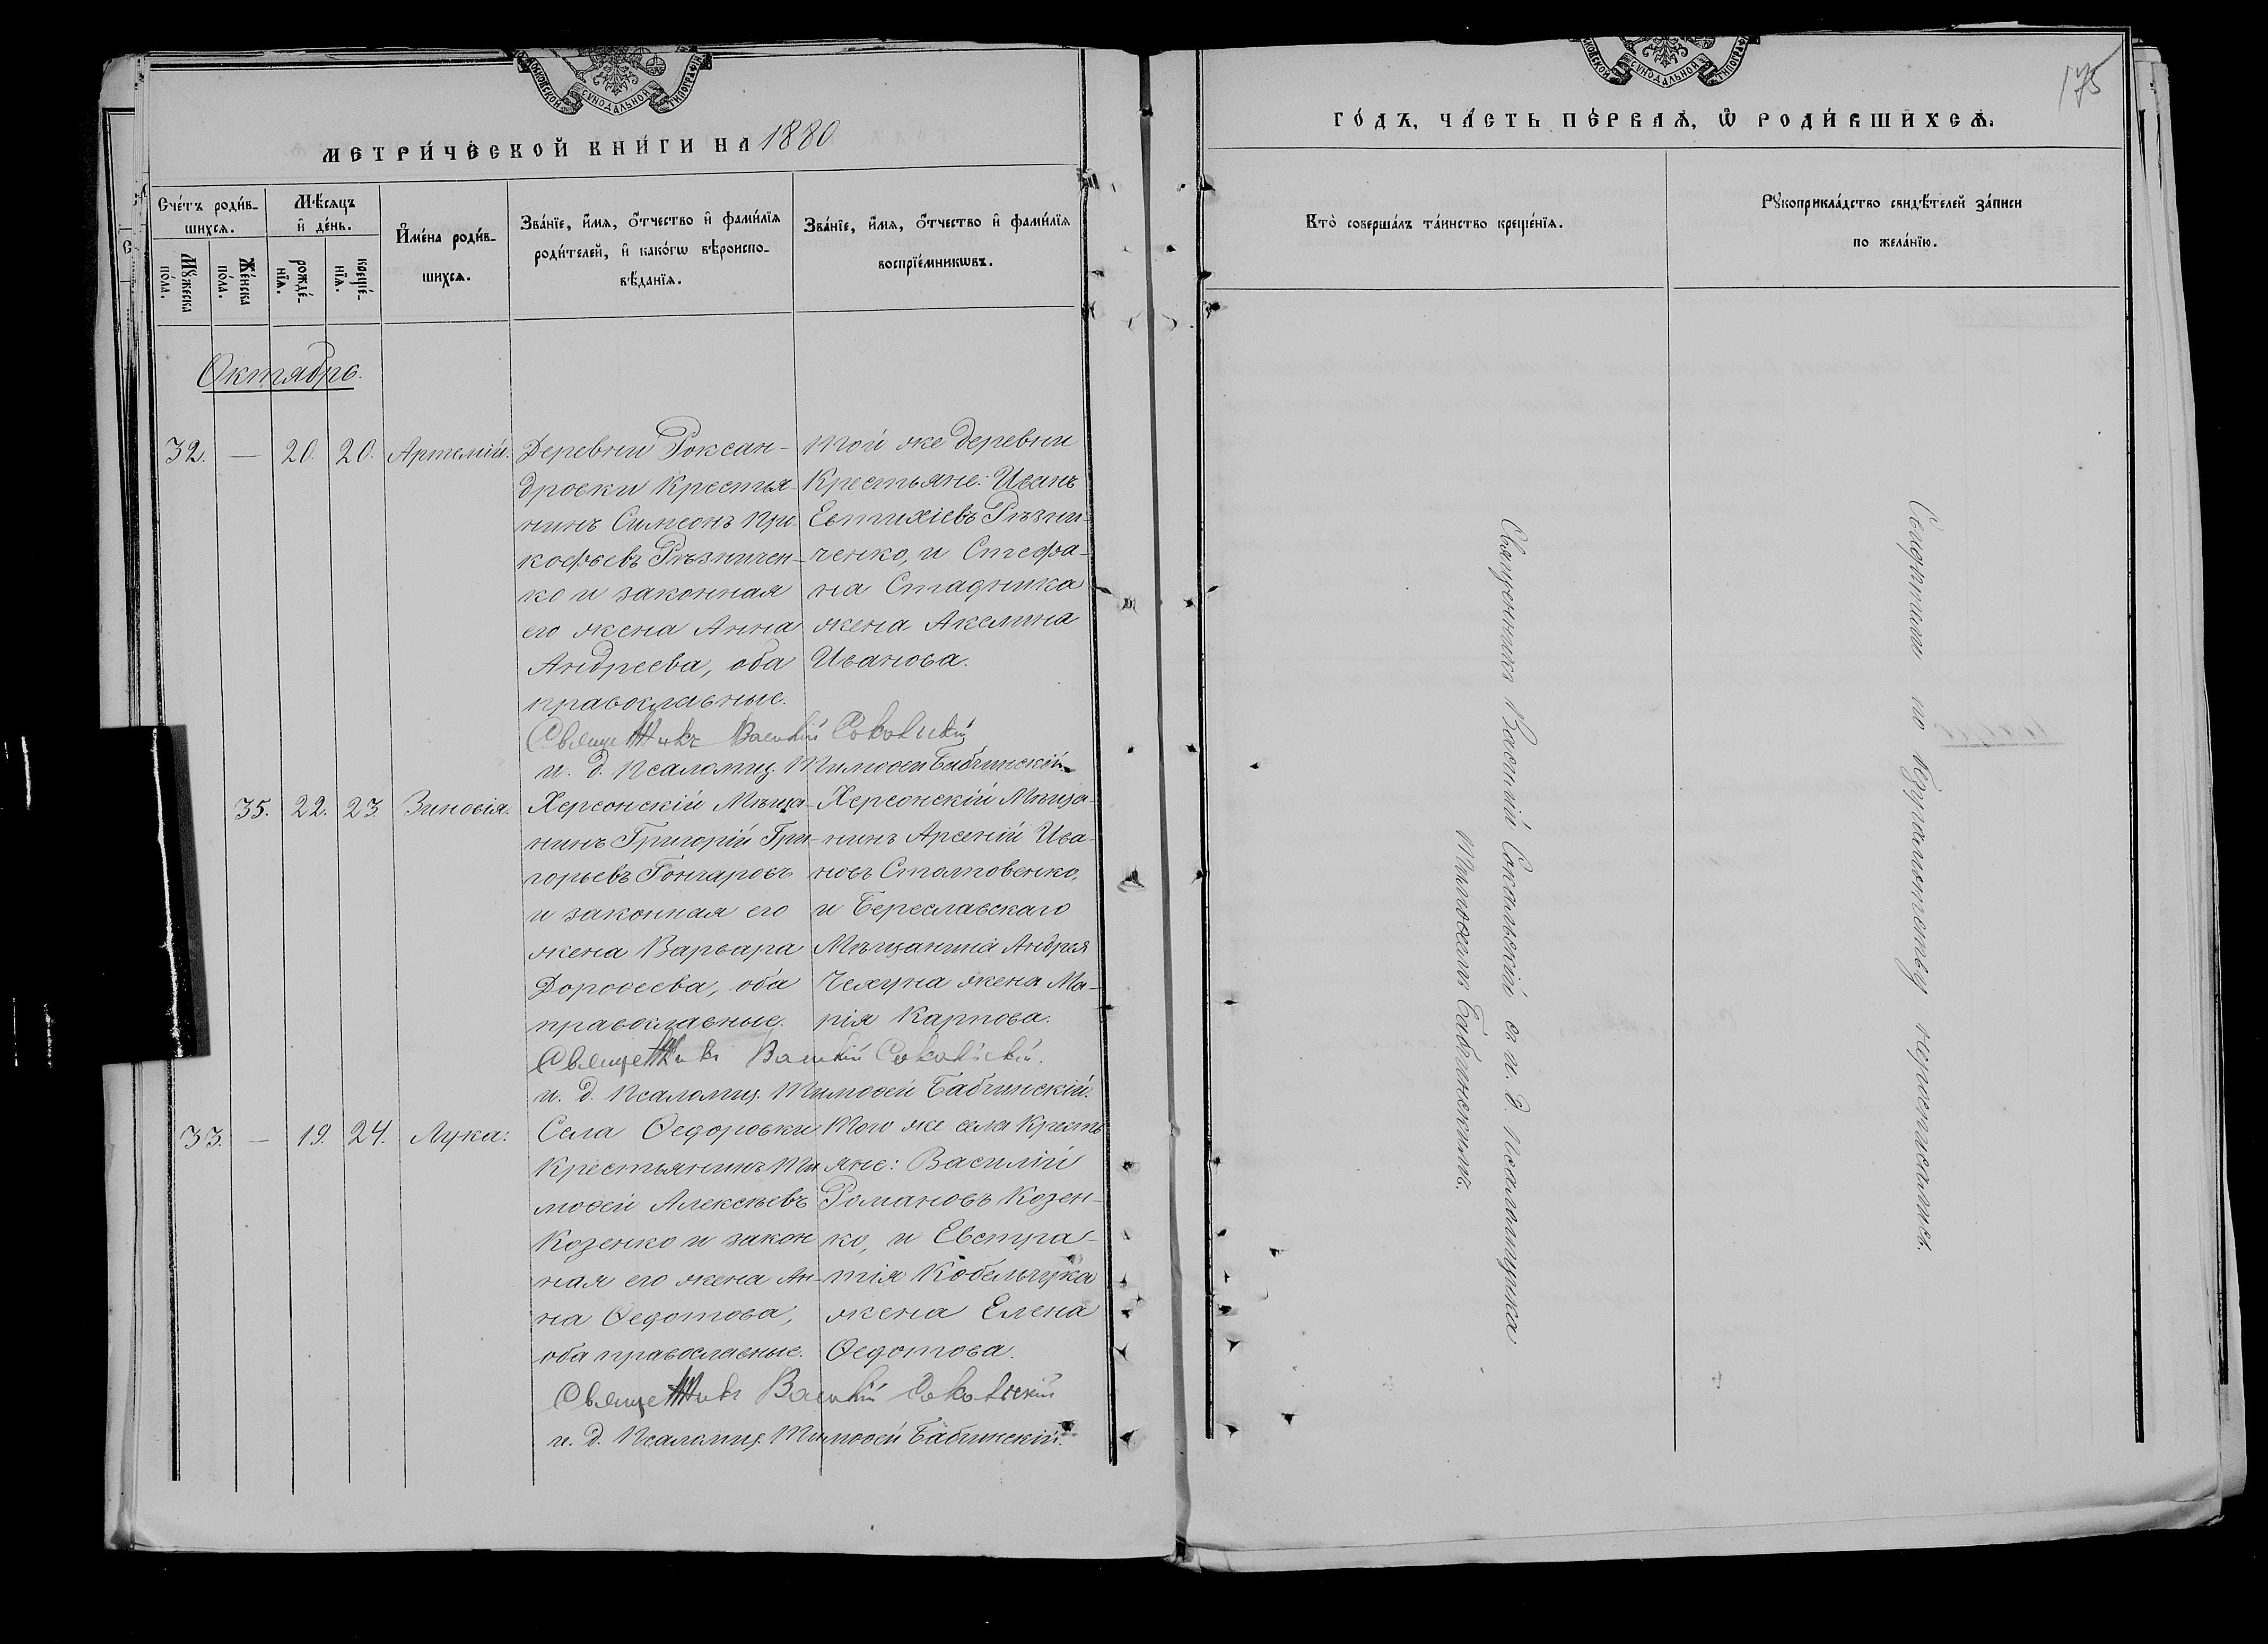 МОСКОВСКОЙ СѴНОДАЛЬНОЙ ТИПОГРАФІИ
МЕТРИ́ЧЕСКОЙ КНИ́ГИ НА 1880
Сче́тъ роди́в-
шихсѧ.
Мꙋ́жеска по́ла.
Же́нска по́ла.
Мѣ́сѧцъ
и҆ де́нь.
рожде́-
нїѧ.
креще́-
нїѧ.
И҆мена̀ роди́в-
шихсѧ.
Зва́нїе, и҆́мѧ, ѻ҆́тчество и҆ фами́лїѧ
роди́телей, и҆ како́гѡ вѣроиспо-
вѣ́данїѧ.
Зва́нїе, и҆́мѧ, ѻ҆́тчество и҆ фами́лїѧ
воспрїе́мникѡвъ.
Октябрь.
32. — 20. 20. Артемій.
Деревни Роксан-
дровки Крестья-
нинъ Симеонъ Про-
кофьевъ Рѣзничен-
ко и законная
его жена Анна
Андреева, оба
православные.
Той же деревни
Крестьяне: Иванъ
Евтихіевъ Рѣзни-
ченко, и Стефа-
на Стадника
жена Акелина
Иванова.
Священникъ Василій Сокольскій
и. д. Псаломщ. Тимоѳей Бабчинскій.
35. 22. 23. Зиновія.
Херсонскій Мѣща-
нинъ Григорій Гри-
горьевъ Гончаровъ
и законная его
жена Варвара
Дороѳеева, оба
православные.
Херсонскій Мѣща-
нинъ Арсеній Ива-
новъ Столповенко,
и Береславскаго
Мѣщанина Андрея
жена Ма-
рія Карпова.
Священникъ Василій Сокольскій.
и. д. Псаломщ. Тимоѳей Бабчинскій.
33. — 19. 24. Лука:
Села Ѳедоровки
Крестьянинъ Ти
моѳей Алексѣевъ
Козенко и закон
ная его жена Ан-
на Ѳедотова,
оба православные.
Того же села Кресть
яне: Василій
Романовъ Козен-
ко, и Евстра-
тія Кобельчука
жена Елена
Ѳедотова.
Священникъ Василій Сокольскій
и. д. Псаломщ. Тимоѳей Бабчинскій.
МОСКОВСКОЙ СѴНОДАЛЬНОЙ ТИПОГРАФІИ
175
ГО́ДЪ, ЧА́СТЬ ПЕ́РВАѦ, Ѡ҆ РОДИ́ВШИХСѦ.
Кто̀ соверша́лъ та́инство креще́нїѧ.
Рꙋкоприкла́дство свидѣ́телей за́писи
по жела́нїю.
Священникъ Василій Сокольскій съ и. д. Псаломщика
Тимоѳеемъ Бабчинскимъ.
по неподписались.